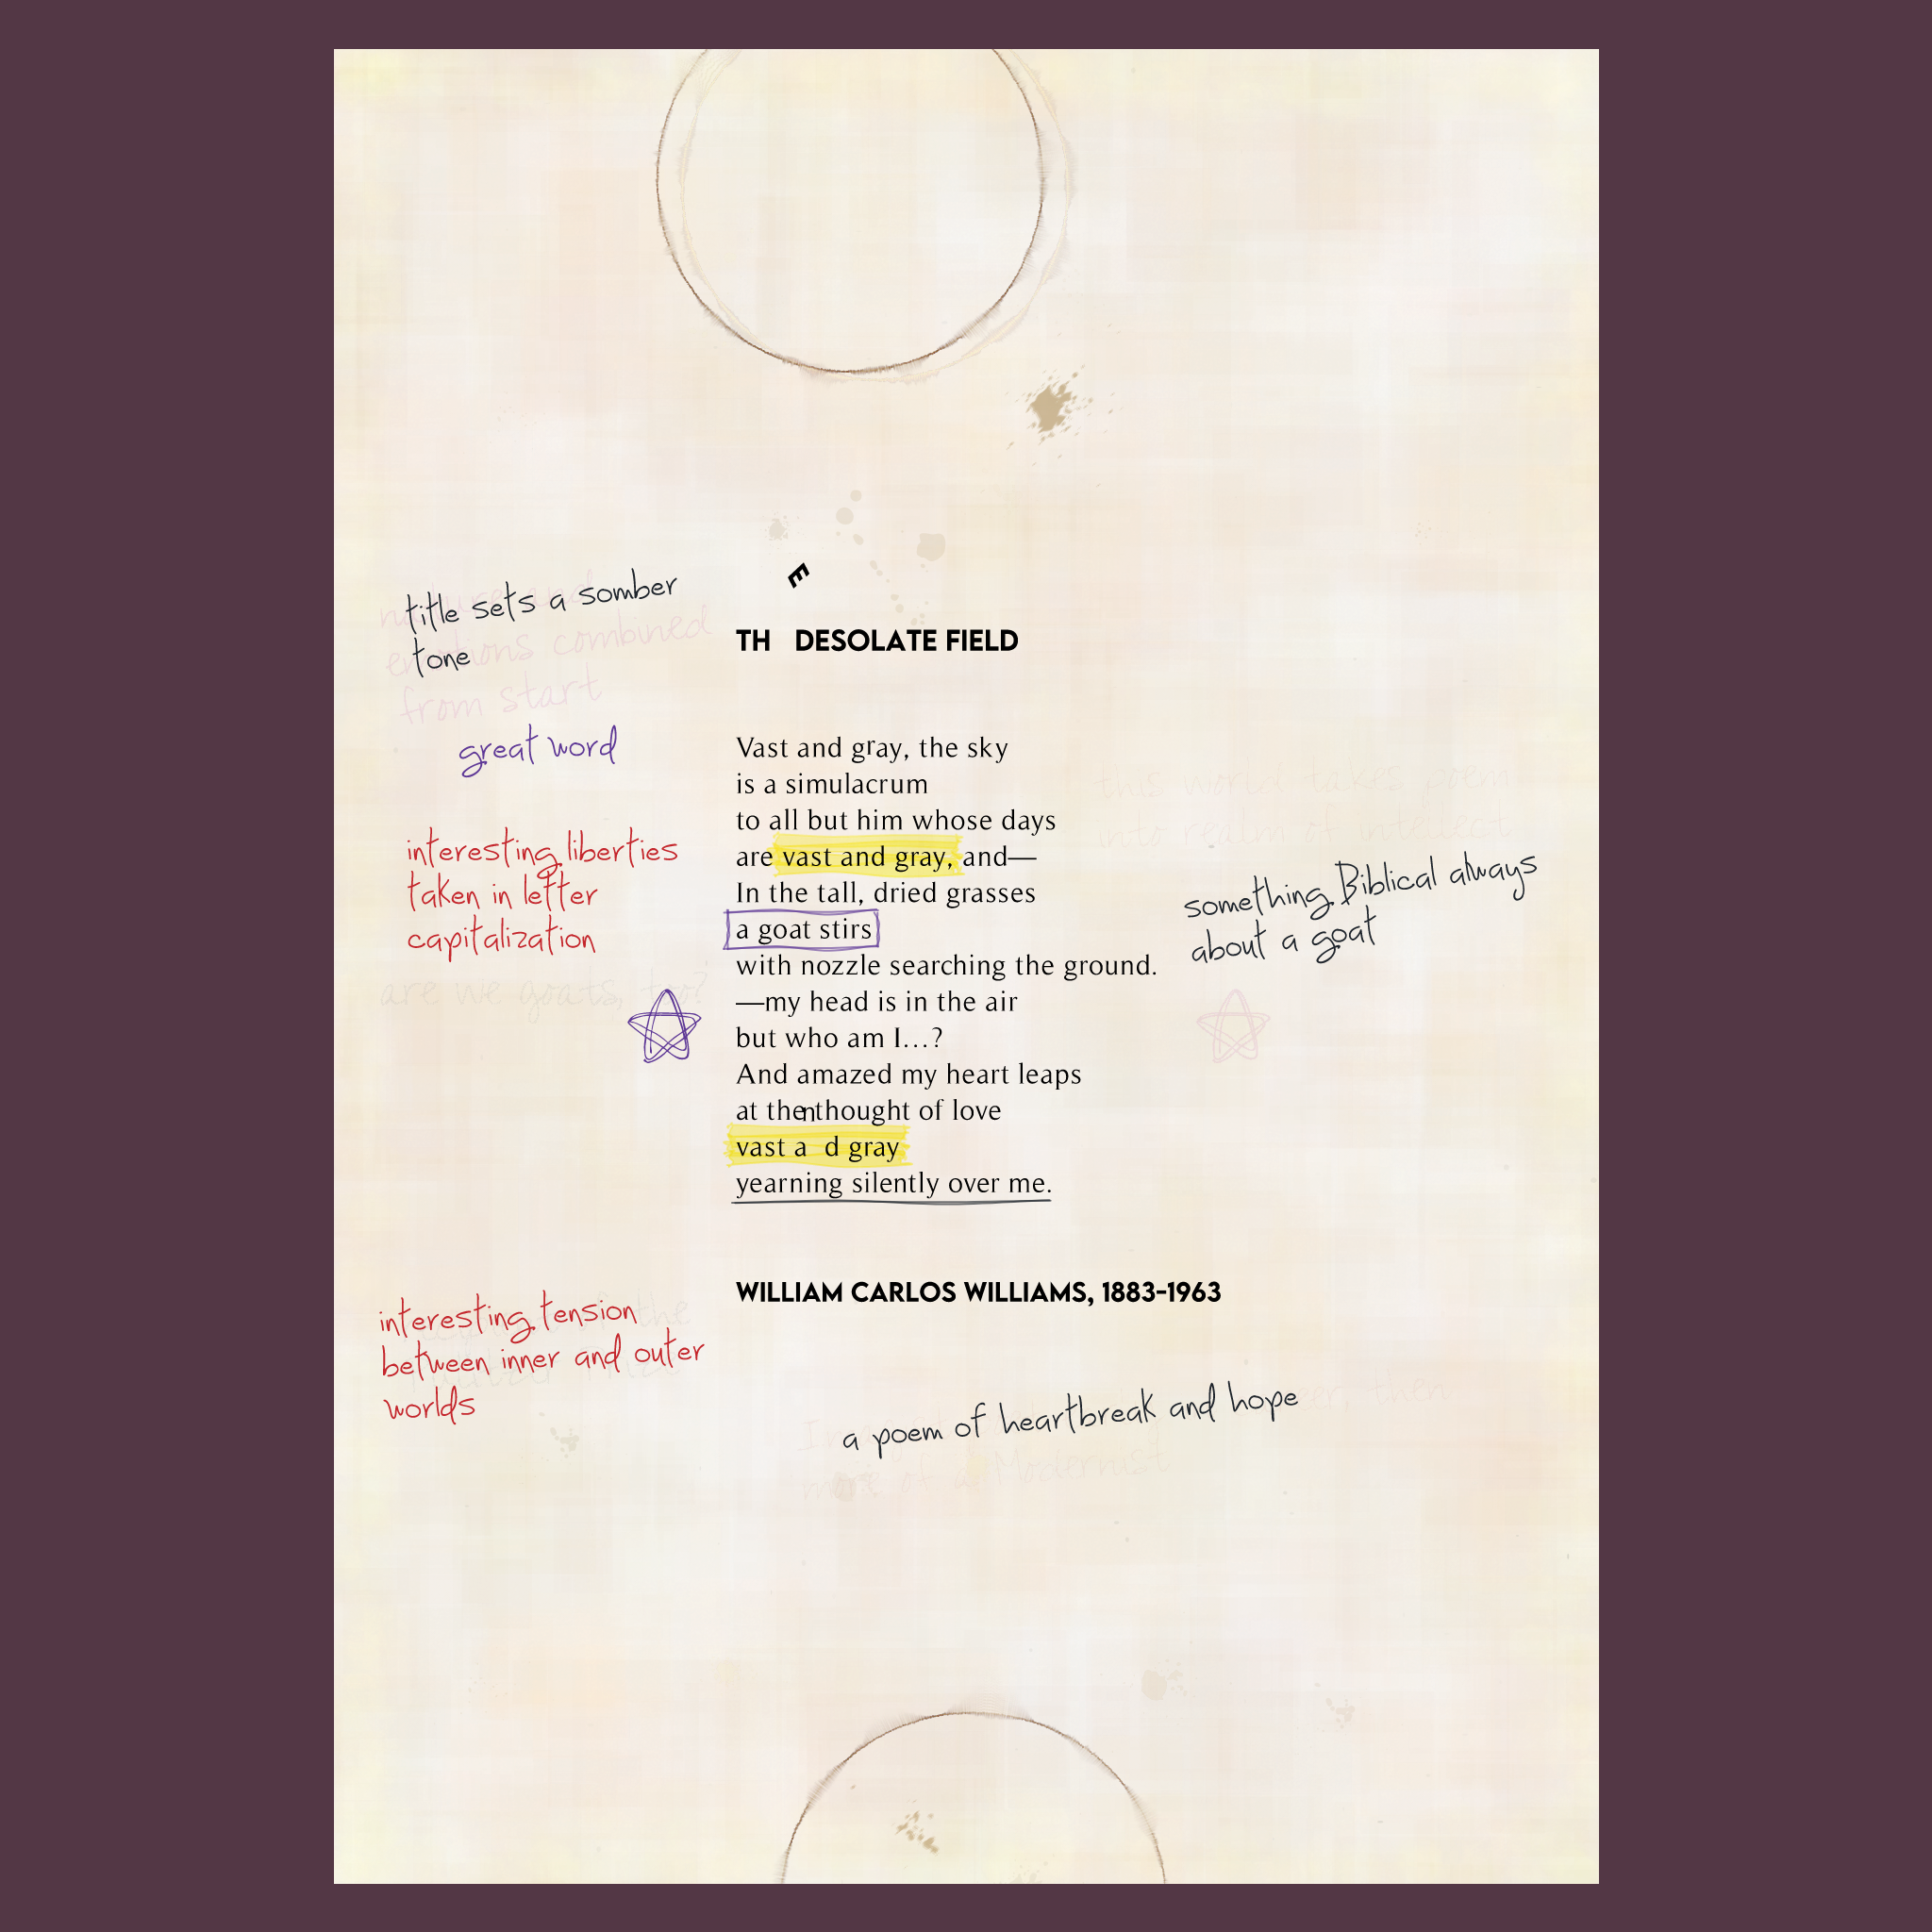 E
TH DESOLATE FIELD
title sets a somber
tone
emotions combined
from start
great word
Vast and gray, the sky
is a simulacrum
to all but him whose days
are vast and gray, and—
In the tall, dried grasses
a goat stirs
with nozzle searching the ground.
—my head is in the air
but who am I...?
And amazed my heart leaps
at the n thought of love
vast a d gray
yearning silently over me.
interesting liberties
taken in letter
capitalization
are we goats, too?
this world takes poem
into realm of intellect
something Biblical always
about a goat
WILLIAM CARLOS WILLIAMS, 1883-1963
interesting tension
between inner and outer
worlds
the
a poem of heartbreak and hope
then
more of a Modernist